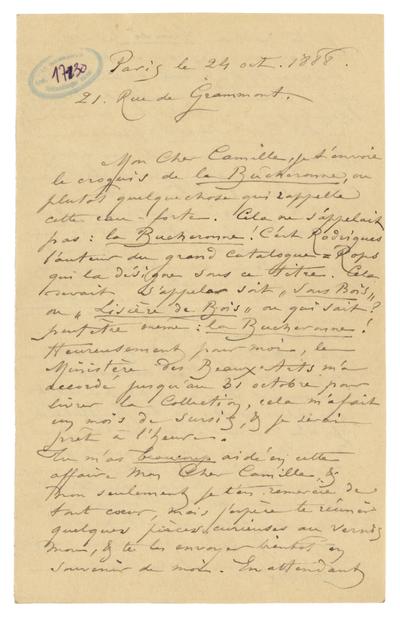 17230
Paris le 24 oct. 1888.
21. Rue de Grammont.
Mon Cher Camille, je t'envoie
le croquis de la Bûcheronne, ou
plutôt quelque chose qui rappelle
cette eau-forte. Cela ne s'appelait
pas : la Bucheronne ! C'est Rodrigues
l'auteur du grand catalogue = Rops
qui la désigne sous ce titre. Cela
devait s'appeler soit „ Sous Bois „
ou „ Lisière de Bois „ ou qui sait ?
peut être même : la Bucheronne !
Heureusement pour moi, le
Ministère des Beaux-Arts m'a
accordé jusqu'au 31 octobre pour
livrer la Collection, cela m'a fait
un mois de sursis, & je serai
prêt à l'heure.
Tu m'as beaucoup aidé en cette
affaire Mon Cher Camille, &
non seulement je t'en remercie de
tout cœur, mais j'espère te réunir
quelques pièces curieuses au vernis
mou, & te les envoyer bientôt en
souvenir de moi. En attendant